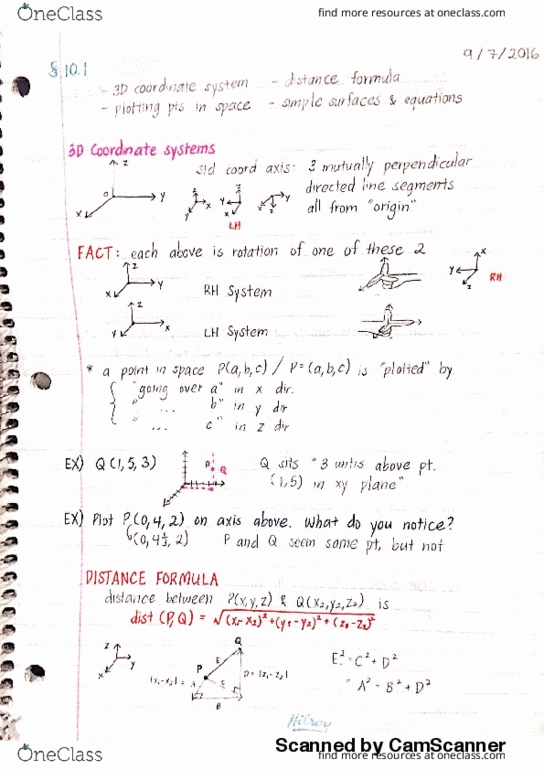 OneClass
find more resources at oneclass.com
9/7/2016
§ 10.1
- 3D coordinate system - distance formula
- plotting pts in space - simple surfaces & equations
3D Coordinate systems
std coord axis: 3 mutually perpendicular
directed line segments
all from "origin"
z
o
y
x
LH
FACT: each above is rotation of one of these 2
z
y
x
RH System
x
y
z
RH
z
x
y
LH System
* a point in space P(a,b,c) / P=(a,b,c) is "plotted" by
"going over a" in x dir.
" ... b" in y dir
" ... c" in z dir
EX) Q (1,5,3)
P
Q
Q sits "3 units above pt.
(1,5) in xy plane"
EX) Plot P(0,4,2) on axis above. What do you notice?
P and Q seem same pt, but not
DISTANCE FORMULA
distance between P(x,y,z) & Q(x₂,y₂,z₂) is
dist (P,Q) = √(x₁-x₂)²+(y₁-y₂)²+(z₁-z₂)²
z
y
x
Q
P
E
D = |z₁-z₂|
|x₁-x₂| =
A
C
B
E² = C² + D²
" A² + B² + D²
Hilroy
Scanned by CamScanner
OneClass
find more resources at oneclass.com